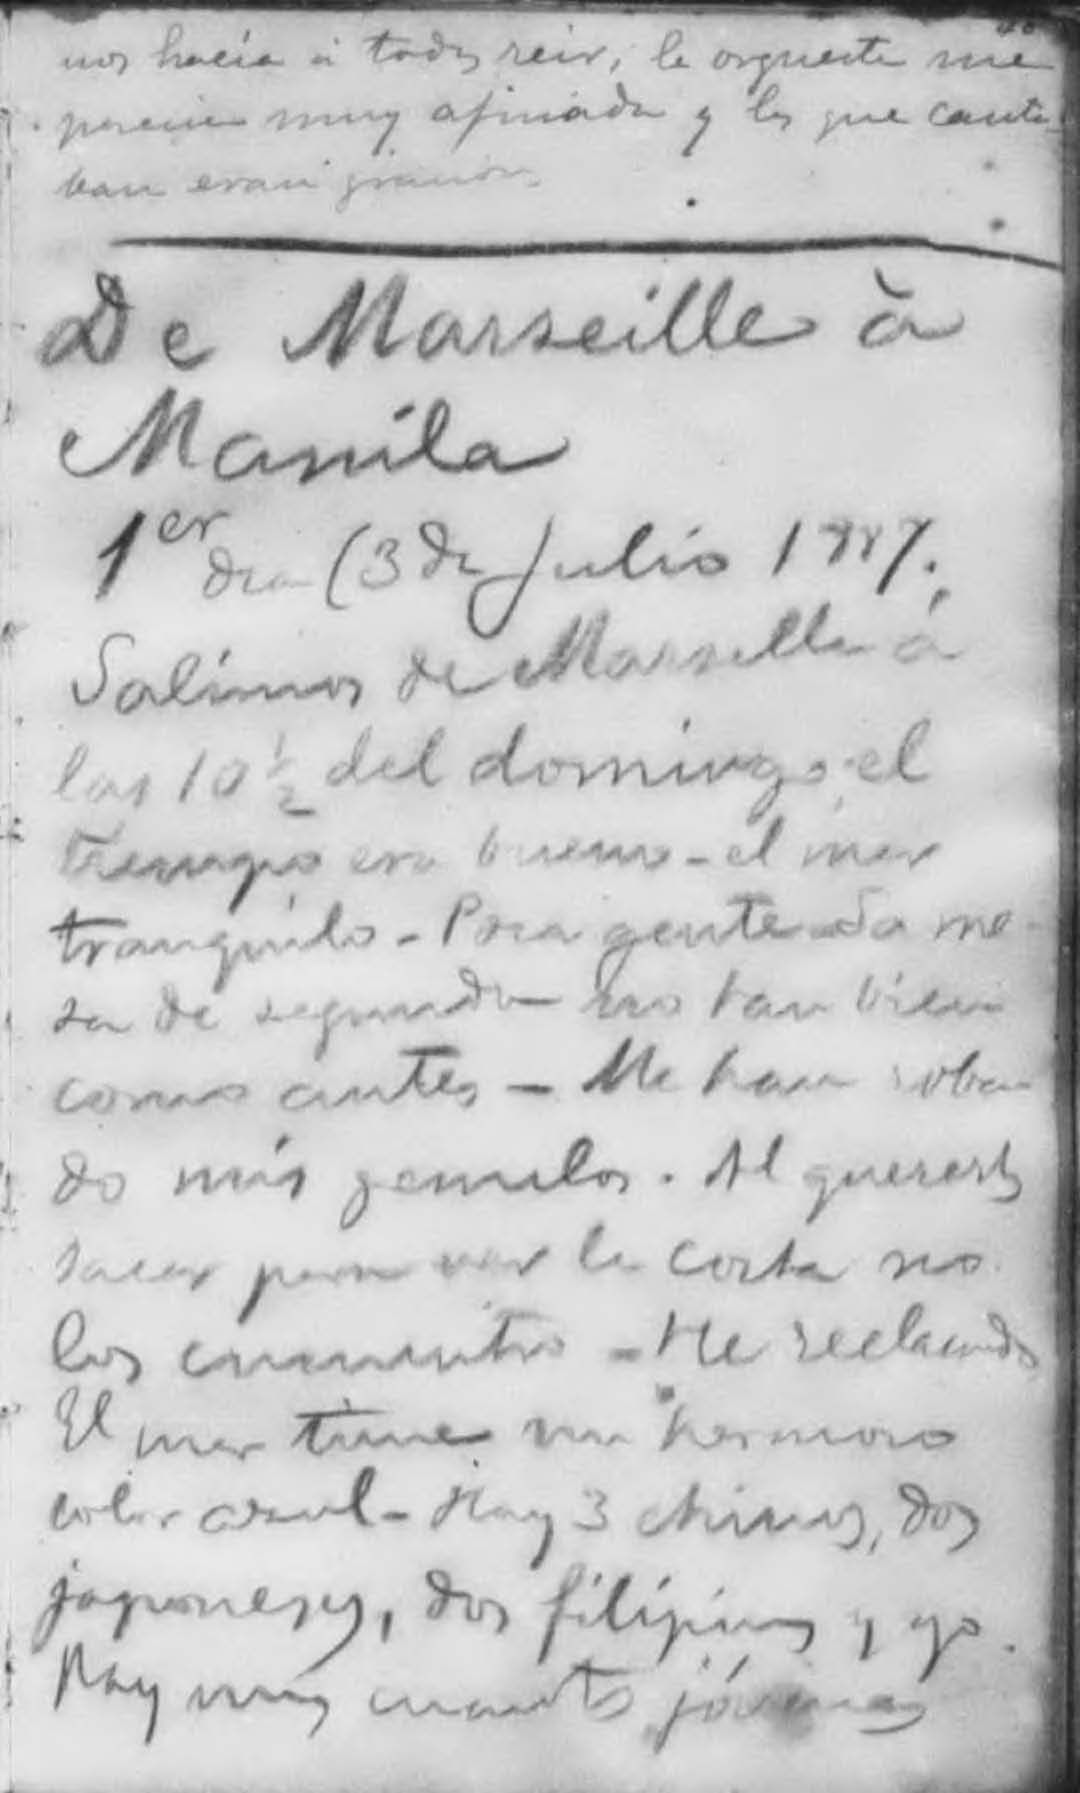 nos hacia á todos reir; la orquesta me
parecia muy afinada y los que canta-
ban eran
De Marseille à
Manila
1er dia (3 de Julio 1887.
Salimos de Marseille á
las 10 ½ del domingo, el
tiempo era bueno - el mar
tranquilo - Poca gente - La me-
sa de segunda no tan bien
como antes - Me han roba-
do mis gemelos. Al quererlos
sacar para ver la costa no
los encuentro - He reclamado
El mar tiene un hermoso
color azul - Hay 3 chinos, dos
japoneses, dos filipinos y yo.
Hay unos cuantos jóvenes